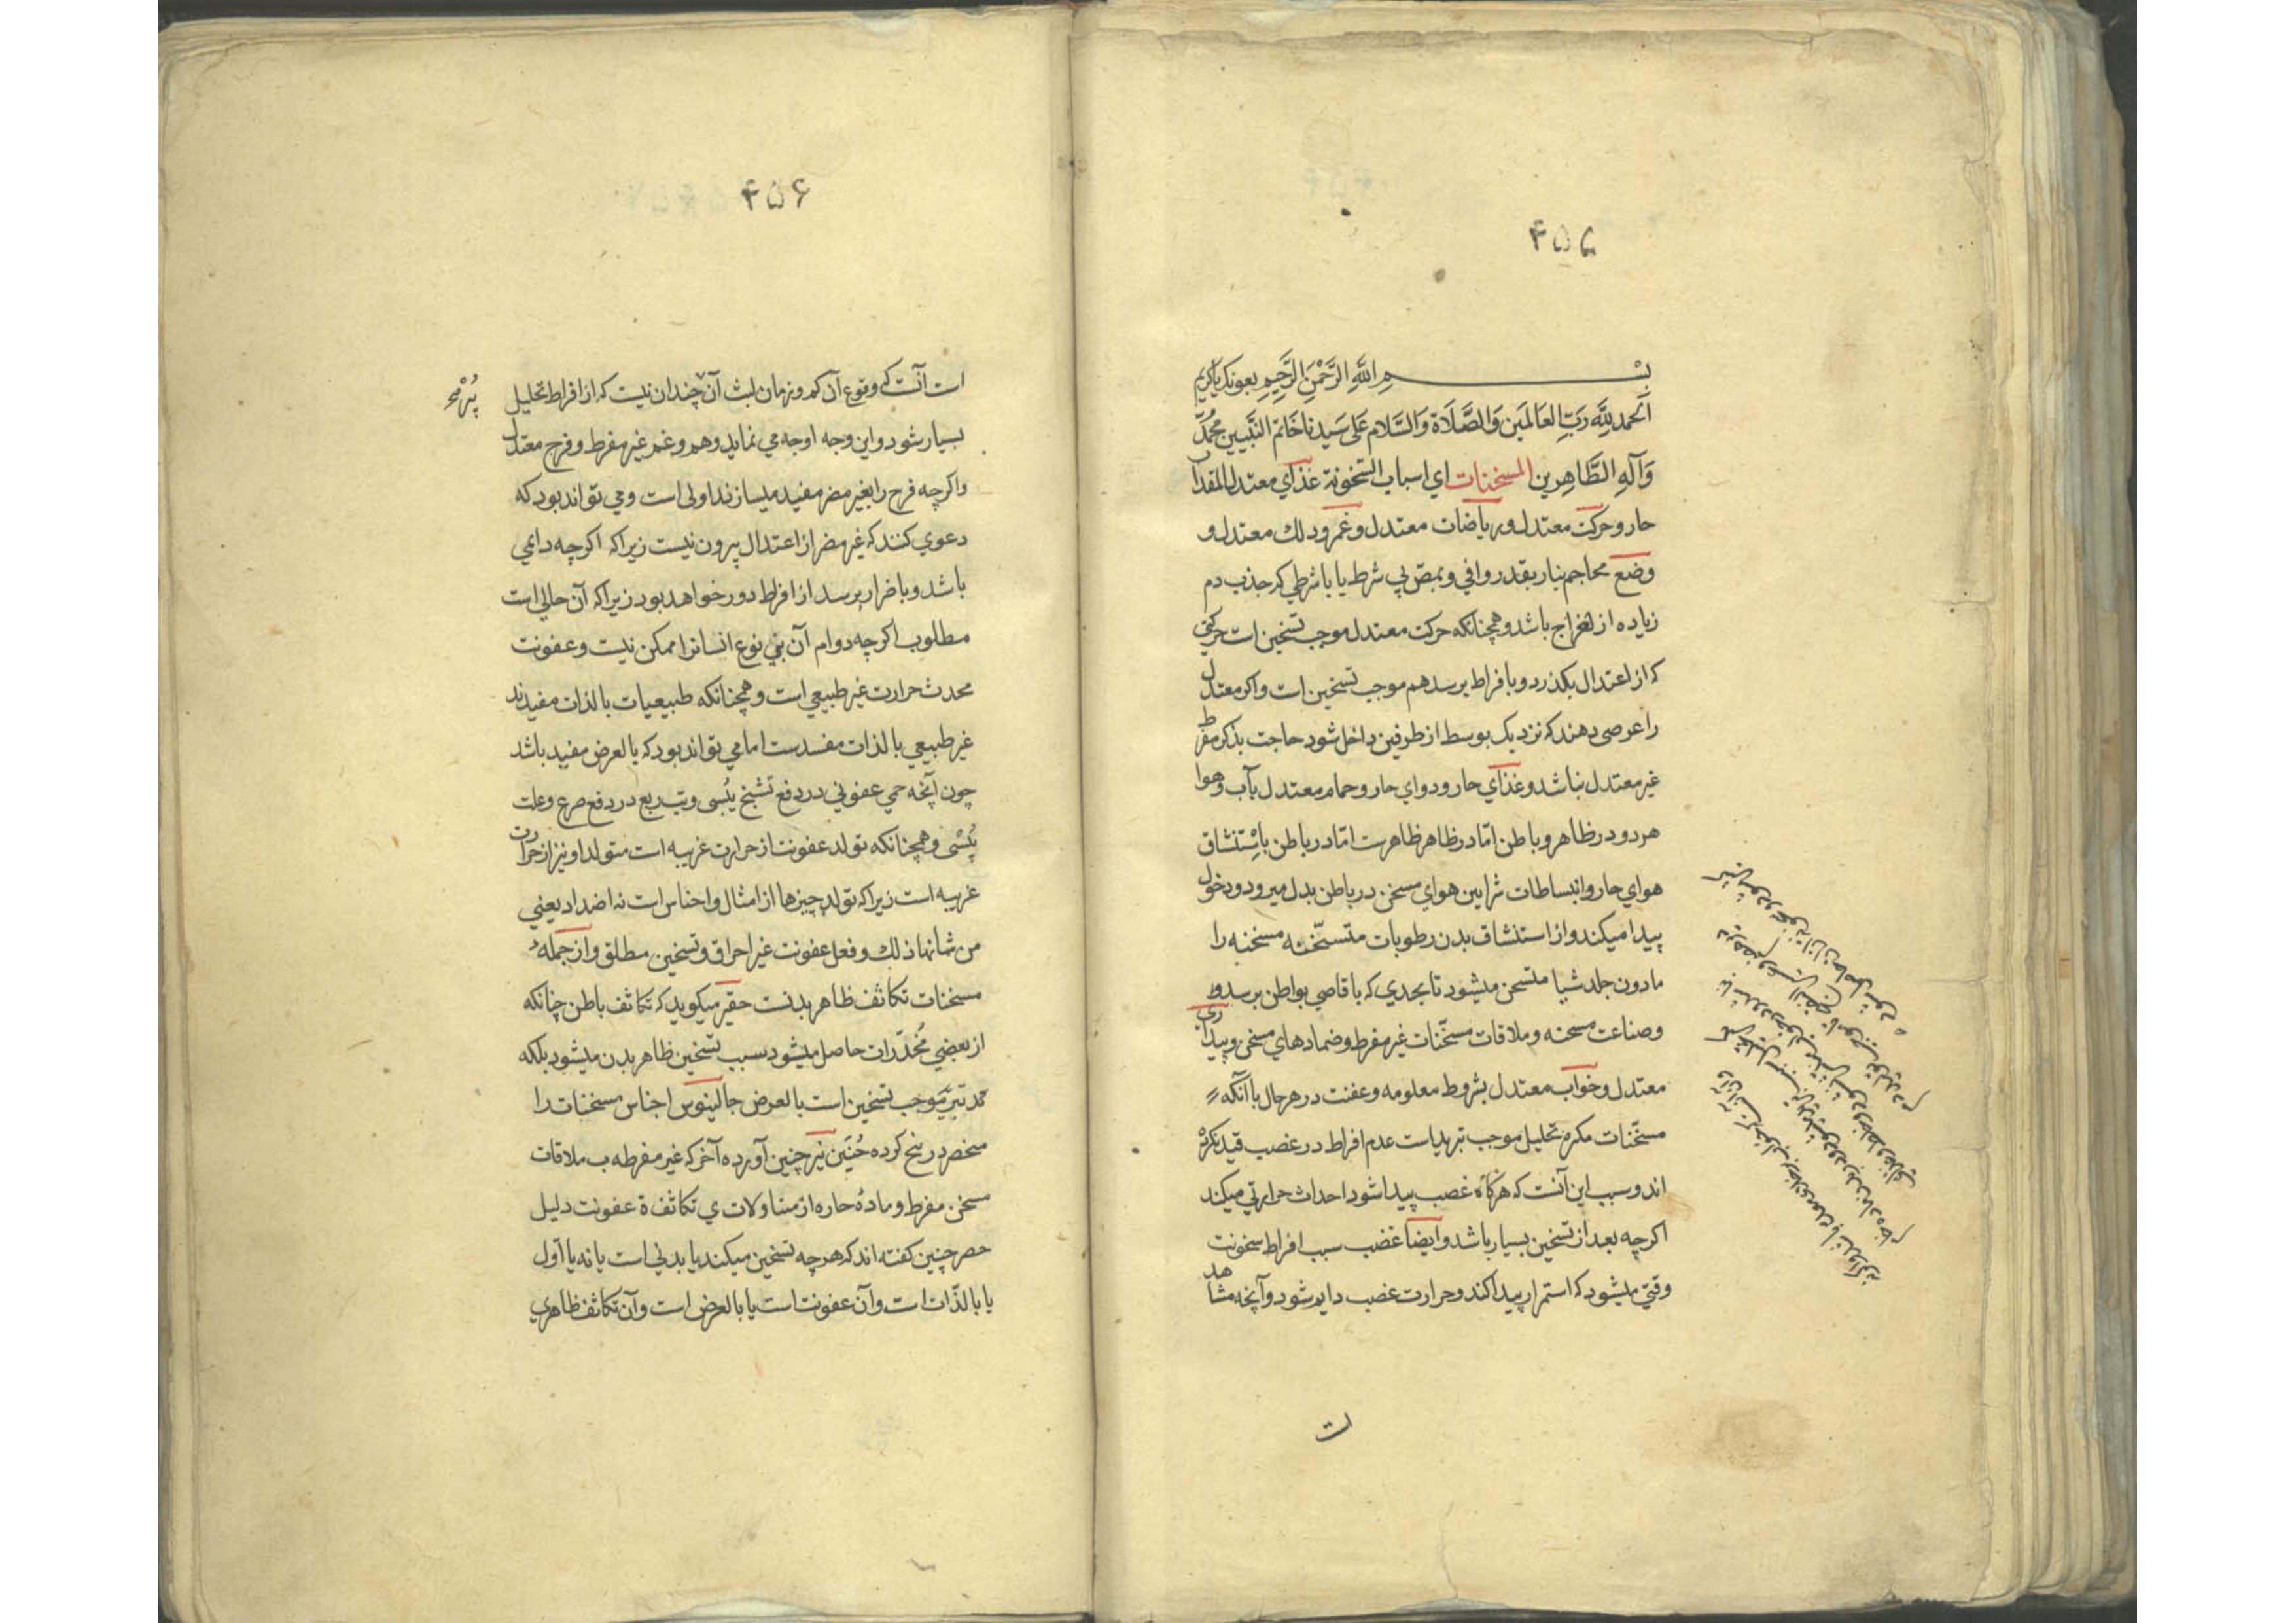 ۴۵۵
بسم الله الرَّحْمنِ الرَّحِيمِ بعونك يا كريم
اَلحمد لِلَّهِ رَبِّ العَالمَين وَالصَّلَاة وَالسَّلام عَلى سَيدنا خَاتم النَّبيين محُمدّ
وَآلهِ الطَّاهِرين المسخنات اي اسباب السَّخونة غذاي معتدل المقدار
حار و حركت معتدل و رياضات معتدل و غمز و دلك معتدل و
وضع محاجم بنار بقدر وافي و بمصّ بي شرط يا با شرطي كه جذب دم
زياده از اخراج باشد و همچنانكه حركت معتدل موجب تسخين است حركتي
كه از اعتدال بكذرد و بافراط برسد هم موجب تسخين است و اكر معتدل
را عرصي دهند كه نزديك بوسط از طرفين داخل شود حاجت بذكر مفرط
غير معتدل نباشد و غذاي حار و دواي حار و حمام معتدل بآب و هوا
هر دو در ظاهر و باطن امّا در ظاهر ظاهرست امّا در باطن باِسْتنشاق
هواي حار و انبساطات شرايين هواي مسخن در باطن بدل ميرود و دخول
پيدا ميكند و از استنشاق بدن رطوبات متسخّنه مسخنه را
مادون جلد شيا متسخن ميشود تا بحدي كه باقاصي بواطن برسد و
وصناعت مسخنه و ملاقات مسخّنات غير مفرط و ضمادهاي مسخن و بيداري
معتدل و خواب معتدل بشروط معلومه و عفنت در هر حال با آنكه
مسخّنات مكرم تحليل موجب تبريد است عدم افراط در غضب قيد نكرد
اند و سبب اين آنست كه هركاه غضب پيدا شود احداث حرارتي ميكند
اكرچه بعد از تسخين بسيار باشد و ايضا غضب سبب افراط سخونت
وقتي ميشود كه استمرار پيدا كند و حرارت غضب دايم شود و آنچه مشاهد
ات
۴۵۶
است آنست كه وقوع آن كم و زمان لبث آن چندان نيست كه از افراط تحليل
بسيار شود و اين وجه اوجه مي نمايد و هم و غم غير مفرط و فرح معتدل
و اكرچه فرح را بغير مضر مفيد ميسازند اولى است و مي تواند بود كه
دعوي كنند كه غير مضر از اعتدال بيرون نيست زيرا كه اكرچه دايمي
باشد و باضرار برسد از افراط دور خواهد بود زيرا كه آن حالي است
مطلوب اكرچه دوام آن بني نوع انسانرا ممكن نيست و عفونت
محدث حرارت غير طبيعي است و همچنانكه طبيعيات بالذات مفيدند
غير طبيعي بالذات مفسدست اما مي تواند بود كه بالعرض مفيد باشد
چون آنچه حمي عفوني در دفع تشنج يُبسى و تب ربع در دفع صرع و علت
يُبْسْى و همچنانكه تولد عفونت از حرارت غريبه است متولد او نيز از حرارت
غريبه است زيرا كه تولد چيزها از امثال و اجناس است نه اضداد يعني
من شانها ذلك و فعل عفونت غير احراق و تسخين مطلق و از جملهء
مسخنات تكاثف ظاهر بدنست حقير ميكويد كه تكاثف باطن چنانكه
از بعضي مُخدّرات حاصل ميشود سبب تسخين ظاهر بدن ميشود بلكه
هر تبريد موجب تسخين است بالعرض جالينوس اجناس مسخنات را
منحصر در پنج كرده حُنَين نيز چنين آورده آخر كه غير مفرطه ب ملاقات
مسخن مفرط و مادهٔ حاره از متناولات ي تكاثف ة عفونت دليل
حصر چنين كفته اند كه هرچه تسخين ميكند يا بدني است يا نه يا اول
يا بالذّات است و آن عفونت است يا بالعرض است و آن تكاثف ظاهري